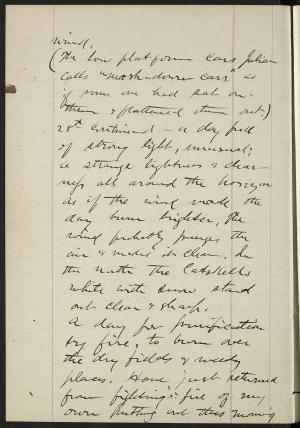 wind.
(The low platform cars Julian
calls "mash-down cars," as
if some one had sat on
them & flattened them out.)
28th Continued — a day full
of strong light, unusual;
a strange lightness & clear-
ness all around the horizon
as if the wind made the
day burn brighter, the
wind probably purges the
air & makes it clean. In
the north the Catskills
white with snow stand
out clear & sharp.
A day for purification
by fire, to burn over
the dry fields & weedy
places. Have just returned
from fighting fire of my
own putting out this morning